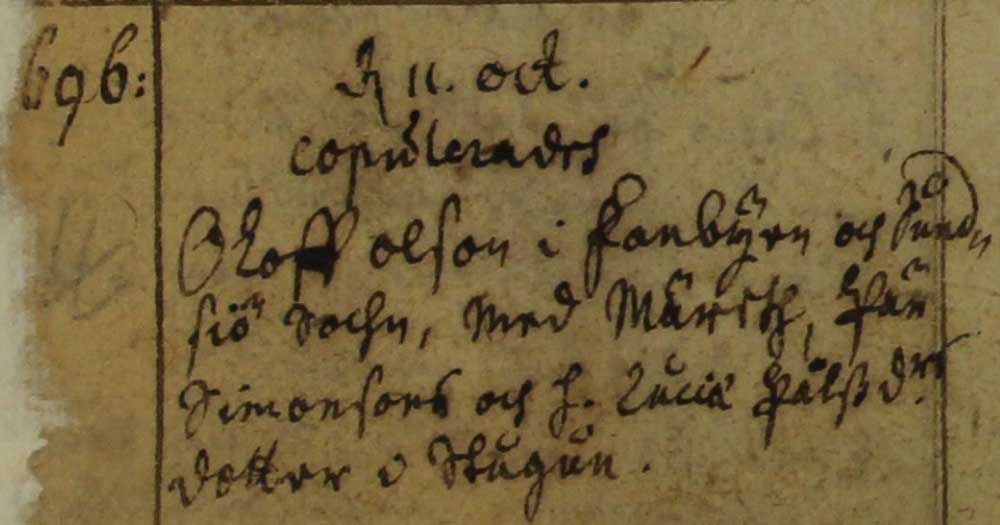 1696:
d. 11. oct.
copulerades
Oloff olson i Fanbÿen och Sund
siö Sochn, med Märeth, Pär
Simonsons och h. Lucia Pålß drs
dotter i Stugun.